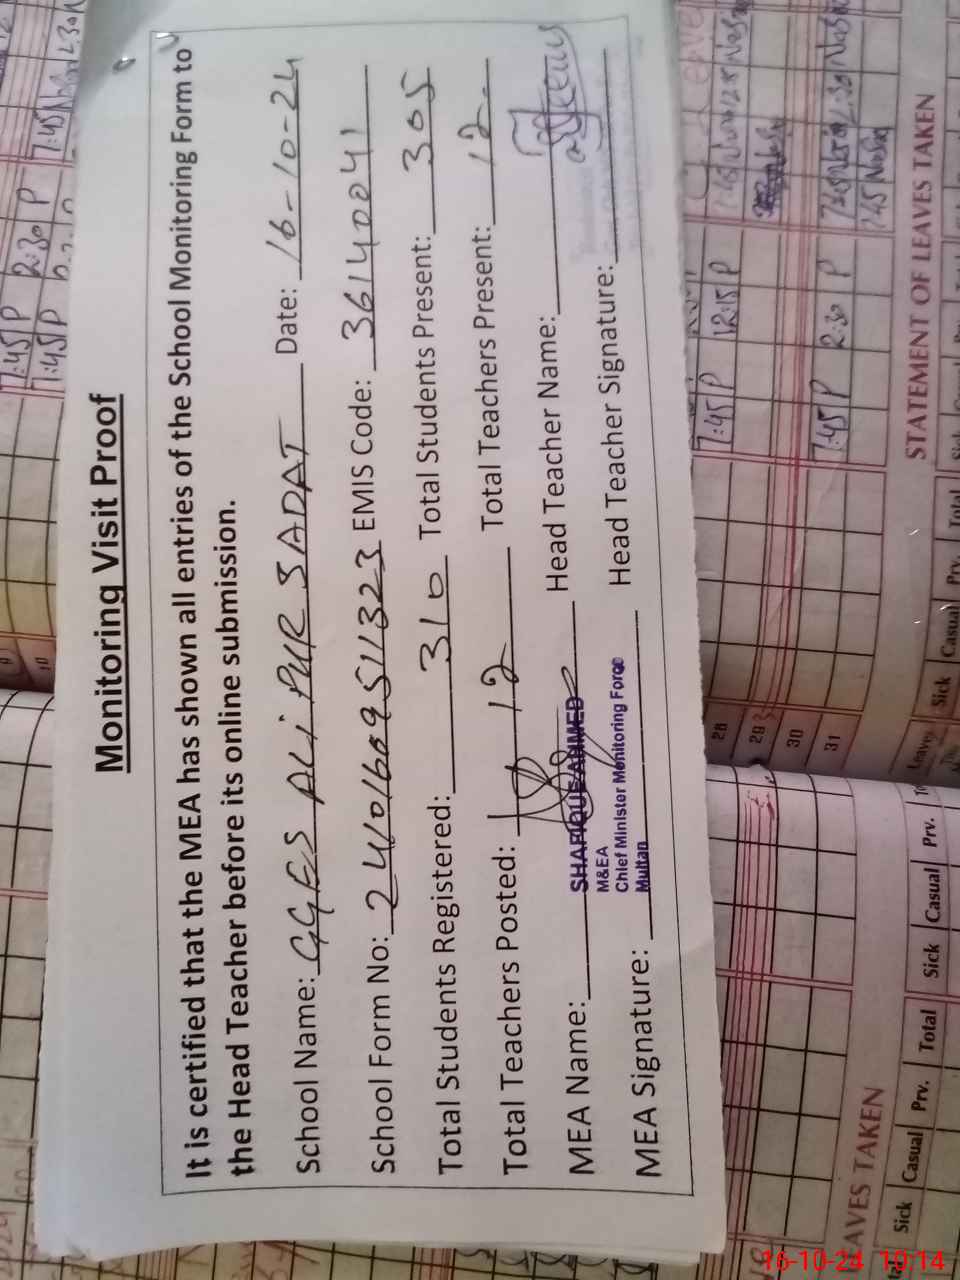 Monitoring Visit Proof
It is certified that the MEA has shown all entries of the School Monitoring Form to
the Head Teacher before its online submission.
School Name: GGES ALi PUR SADAT Date: 16-10-24
School Form No: 2410160951323 EMIS Code: 36140041
Total Students Registered: 310 Total Students Present: 305
Total Teachers Posted: 12 Total Teachers Present: 12
MEA Name: SHAFIQUE AHMED Head Teacher Name:
M&EA
Chief Minister Monitoring Force
Multan
MEA Signature: Head Teacher Signature:
7:45 P 2:30 P
7:45 P
7:45 P 12:15 P
7:45 P 2:30 P
28
29
30
31
STATEMENT OF LEAVES TAKEN
Leaves Sick Casual Prv. Total
LEAVES TAKEN
Sick Casual Prv. Total Sick Casual Prv.
16-10-24 10:14